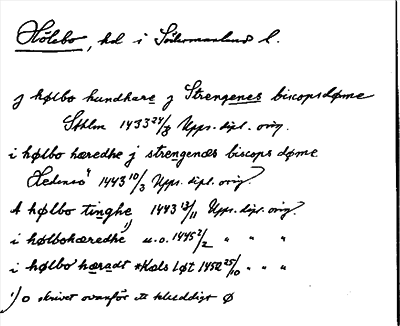 Hölebo, hd i Södermanlands l.
j hølbo hundhare j Strengenes biscopsdøme
Sthlm 1433 24/3 Upps. dipl. orig.
i hølbo hæredhe j strengenæs biscops døme
Hedensö 1443 10/3 Upps. dipl. orig.
A hølbo tinghe 1443 13/11 Upps. dipl. orig.
i hølbohæredhe 1) u.o. 1445 2/2 " " "
i hølbo hæradt *Kals Løt 1452 25/10 " " "
1) o skrivet ovanför ett tydligt ø